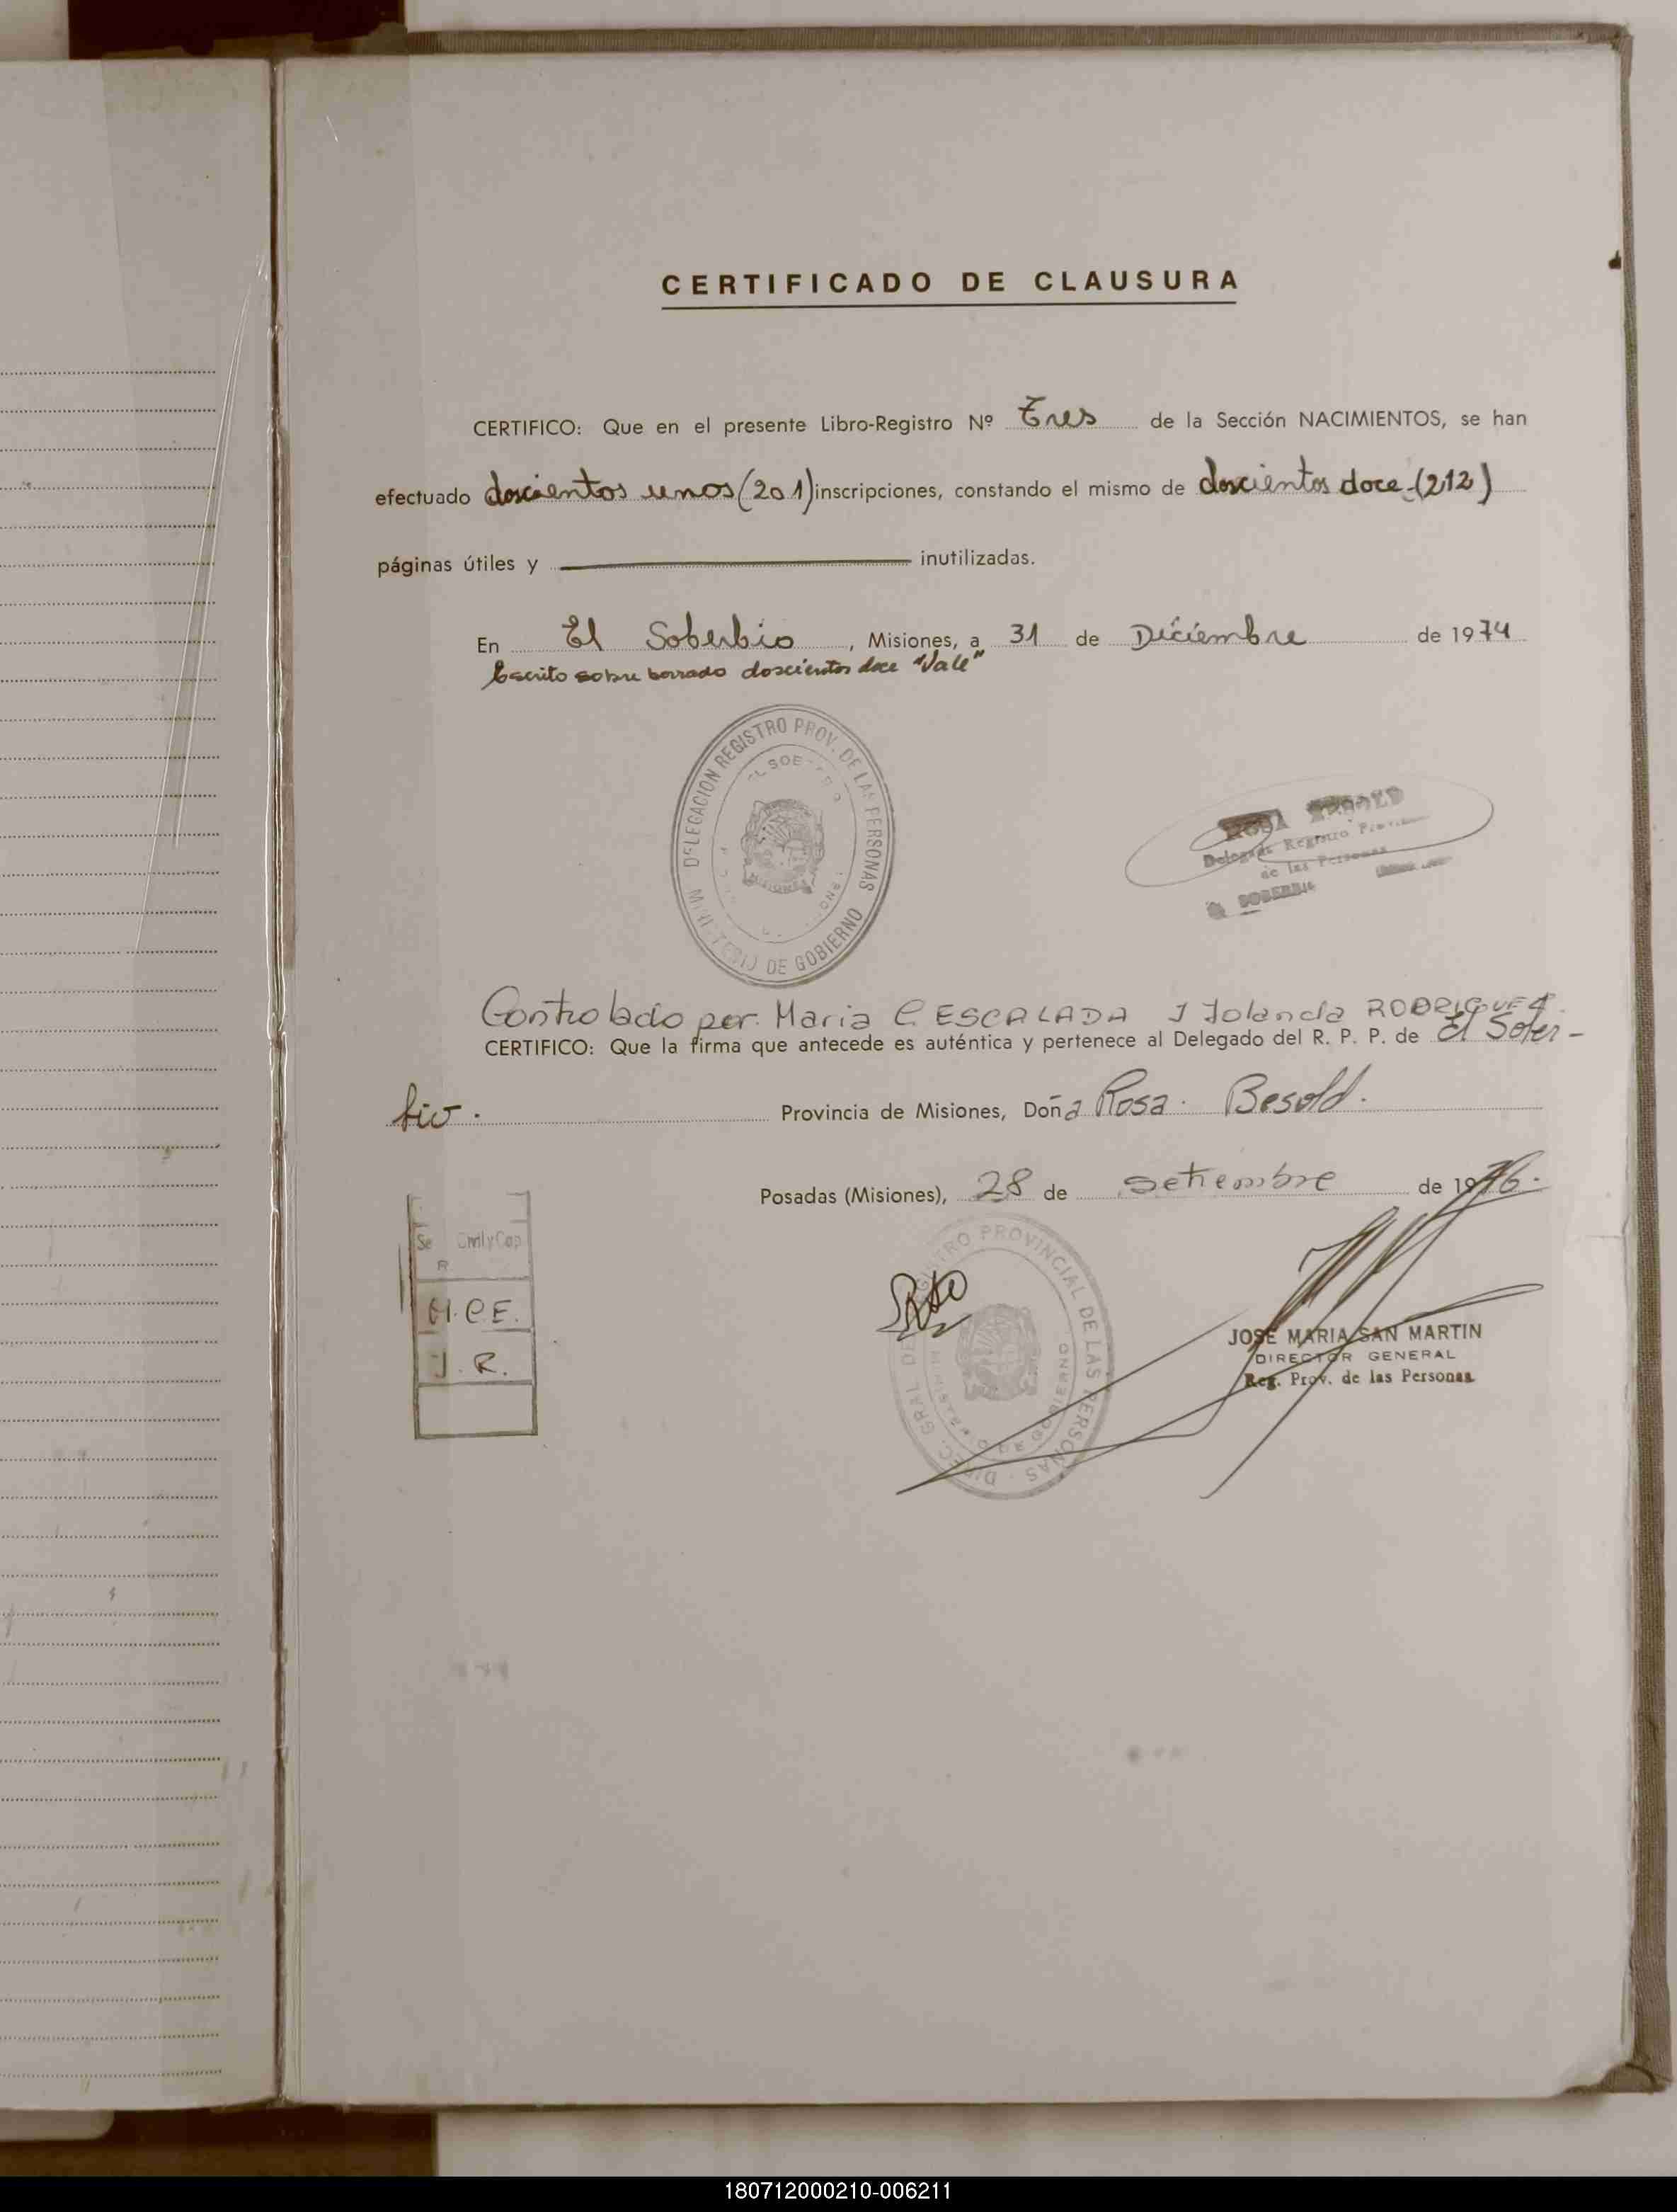 CERTIFICADO DE CLAUSURA
CERTIFICO: Que en el presente Libro-Registro Nº Tres de la Sección NACIMIENTOS, se han
efectuado doscientos unos (201) inscripciones, constando el mismo de doscientos doce (212)
páginas útiles y inutilizadas.
En El Soberbio, Misiones, a 31 de Diciembre de 1974
Escrito sobre borrado doscientos doce "Vale"
DELEGACION REGISTRO PROV. DE LAS PERSONAS
MINISTERIO DE GOBIERNO
MISIONES
ROSA BESOLD
Delegada Registro
de las Personas
SOBERBIO
Controlado por Maria C. ESCALADA J Jolanda RODRIGUEZ
CERTIFICO: Que la firma que antecede es auténtica y pertenece al Delegado del R. P. P. de El Sober-
bio. Provincia de Misiones, Doña Rosa Besold.
Posadas (Misiones), 28 de Setiembre de 1976.
M.C.E.
J.R.
DIREC. GRAL. DEL REGISTRO PROVINCIAL DE LAS PERSONAS
JOSE MARIA SAN MARTIN
DIRECTOR GENERAL
Reg. Prov. de las Personas
180712000210-006211